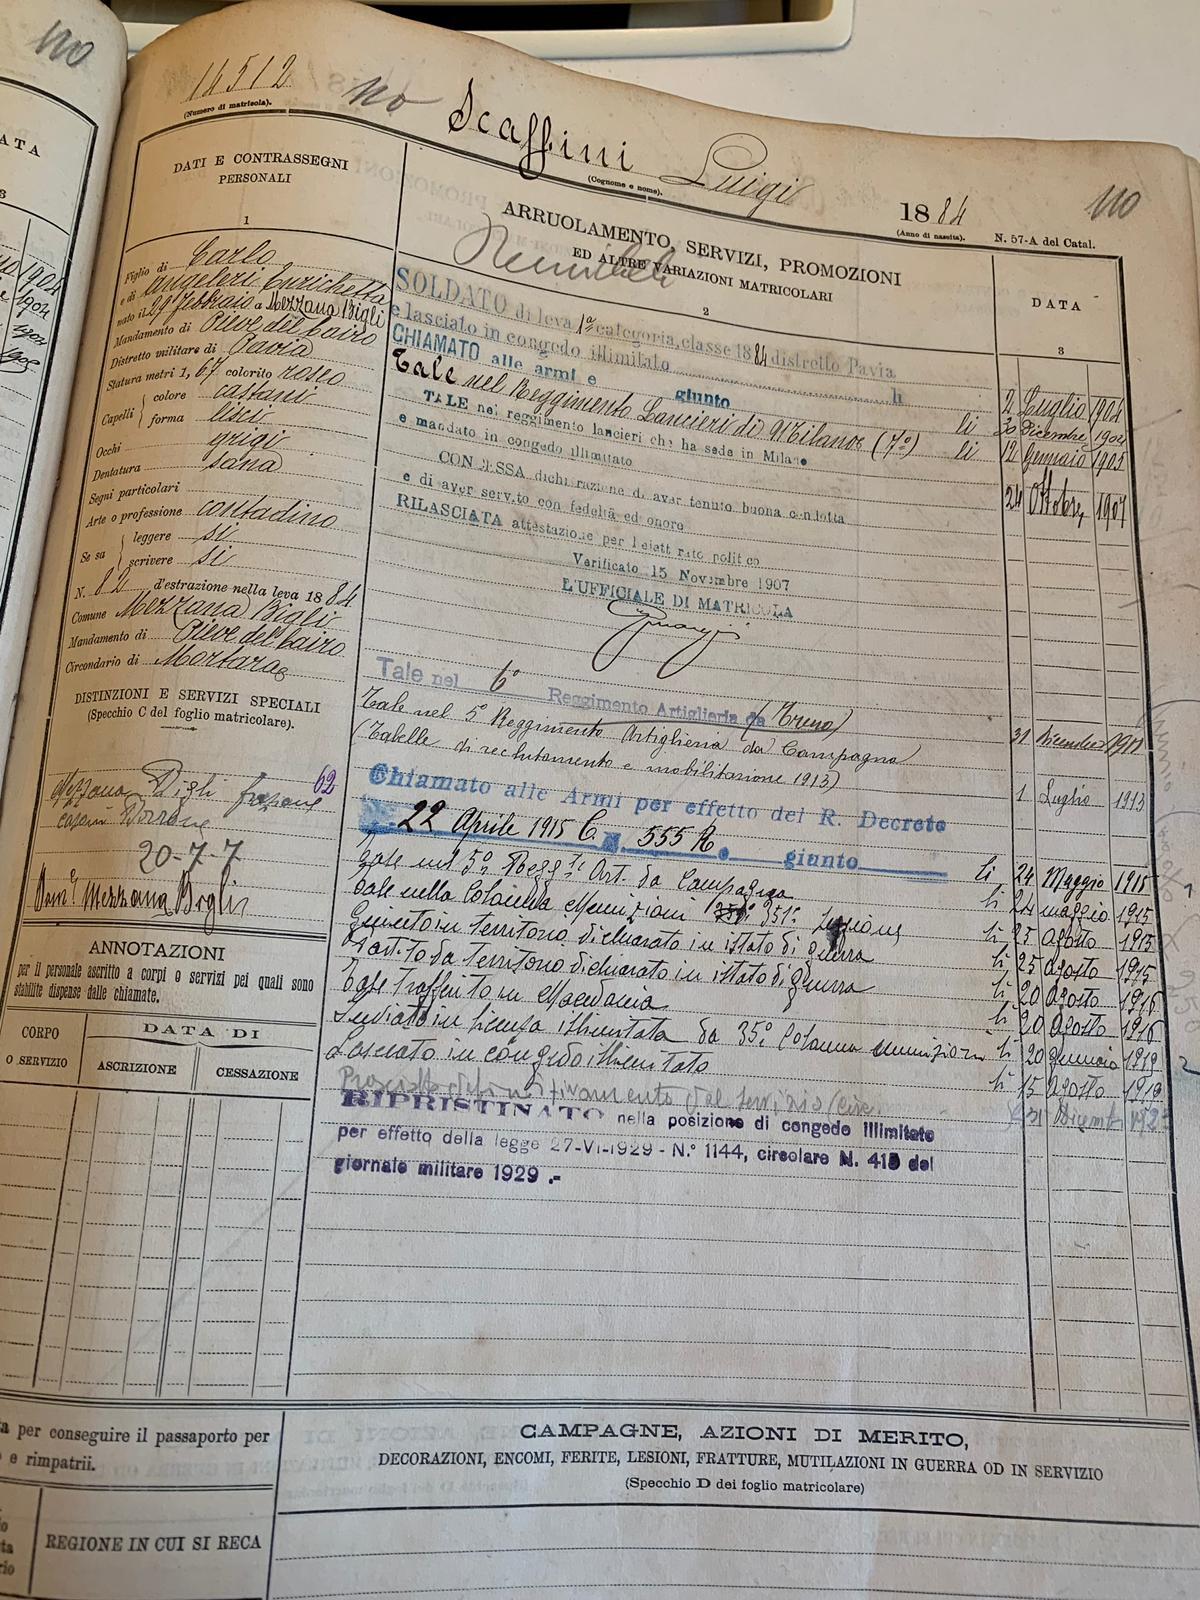 14512
(Numero di matricola).
Scaffini Luigi
(Cognome e nome).
1884
(Anno di nascita).
N. 57-A del Catal.
110
110
ATA
DATI E CONTRASSEGNI
PERSONALI
1
Figlio di Carlo
e di Angeleri Enrichetta
nato il 29 febbraio a Mezzana Bigli
Mandamento di Pieve del Cairo
Distretto militare di Pavia
Statura metri 1, 67 colorito roseo
Capelli colore castani
forma lisci
Occhi grigi
Dentatura sana
Segni particolari
Arte o professione contadino
Se sa leggere si
scrivere si
N. 82 d'estrazione nella leva 1884
Comune Mezzana Bigli
Mandamento di Pieve del Cairo
Circondario di Mortara
DISTINZIONI E SERVIZI SPECIALI
(Specchio C del foglio matricolare).
62
Mezzana Bigli frazione
20-7-7
Mezzana Biglis
ANNOTAZIONI
per il personale ascritto a corpi o servizi pei quali sono
stabilite dispense dalle chiamate.
CORPO
O SERVIZIO
DATA DI
ASCRIZIONE
CESSAZIONE
ARRUOLAMENTO, SERVIZI, PROMOZIONI
ED ALTRE VARIAZIONI MATRICOLARI
2
DATA
3
SOLDATO di leva 1ª categoria, classe 1884 distretto Pavia
e lasciato in congedo illimitato li 2 Luglio 1904
CHIAMATO alle armi e giunto li 30 Dicembre 1904
Tale nel Reggimento Lancieri di Milano (7º) li 12 Gennaio 1905
TALE nel reggimento lancieri che ha sede in Milano
e mandato in congedo illimitato 24 Ottobre 1907
CONCESSA dichiarazione di aver tenuto buona condotta
e di aver servito con fedeltà ed onore
RILASCIATA attestazione per l'elettorato politico
Verificato 15 Novembre 1907
L'UFFICIALE DI MATRICOLA
Tale nel 6º Reggimento Artiglieria da (Treno) 31 Dicembre
Tale nel 5º Reggimento Artiglieria da Campagna
(Tabelle di reclutamento e mobilitazione 1913) 1 Luglio 1913
Chiamato alle Armi per effetto del R. Decreto
22 Aprile 1915 C. 555 R. e giunto li 24 Maggio 1915
Tale nel 5º Regg.to Art. da Campagna li 24 maggio 1915
Tale nella Colonna Munizioni 351ª li 25 agosto 1915
Giunto in territorio dichiarato in istato di guerra li 25 agosto 1915
Partito da territorio dichiarato in istato di guerra li 20 agosto 1916
Tale trasferito in Macedonia li 20 agosto 1916
Inviato in licenza illimitata da 35ª Colonna munizioni li 20 gennaio 1919
Lasciato in congedo illimitato li 15 agosto 1919
Prosciolto definitivamente dal servizio (circ. 31 Dicembre
RIPRISTINATO nella posizione di congedo illimitato
per effetto della legge 27-VI-1929 - N.º 1144, circolare N. 415 del
giornale militare 1929 .-
a per conseguire il passaporto per
e rimpatrii.
REGIONE IN CUI SI RECA
CAMPAGNE, AZIONI DI MERITO,
DECORAZIONI, ENCOMI, FERITE, LESIONI, FRATTURE, MUTILAZIONI IN GUERRA OD IN SERVIZIO
(Specchio D del foglio matricolare)